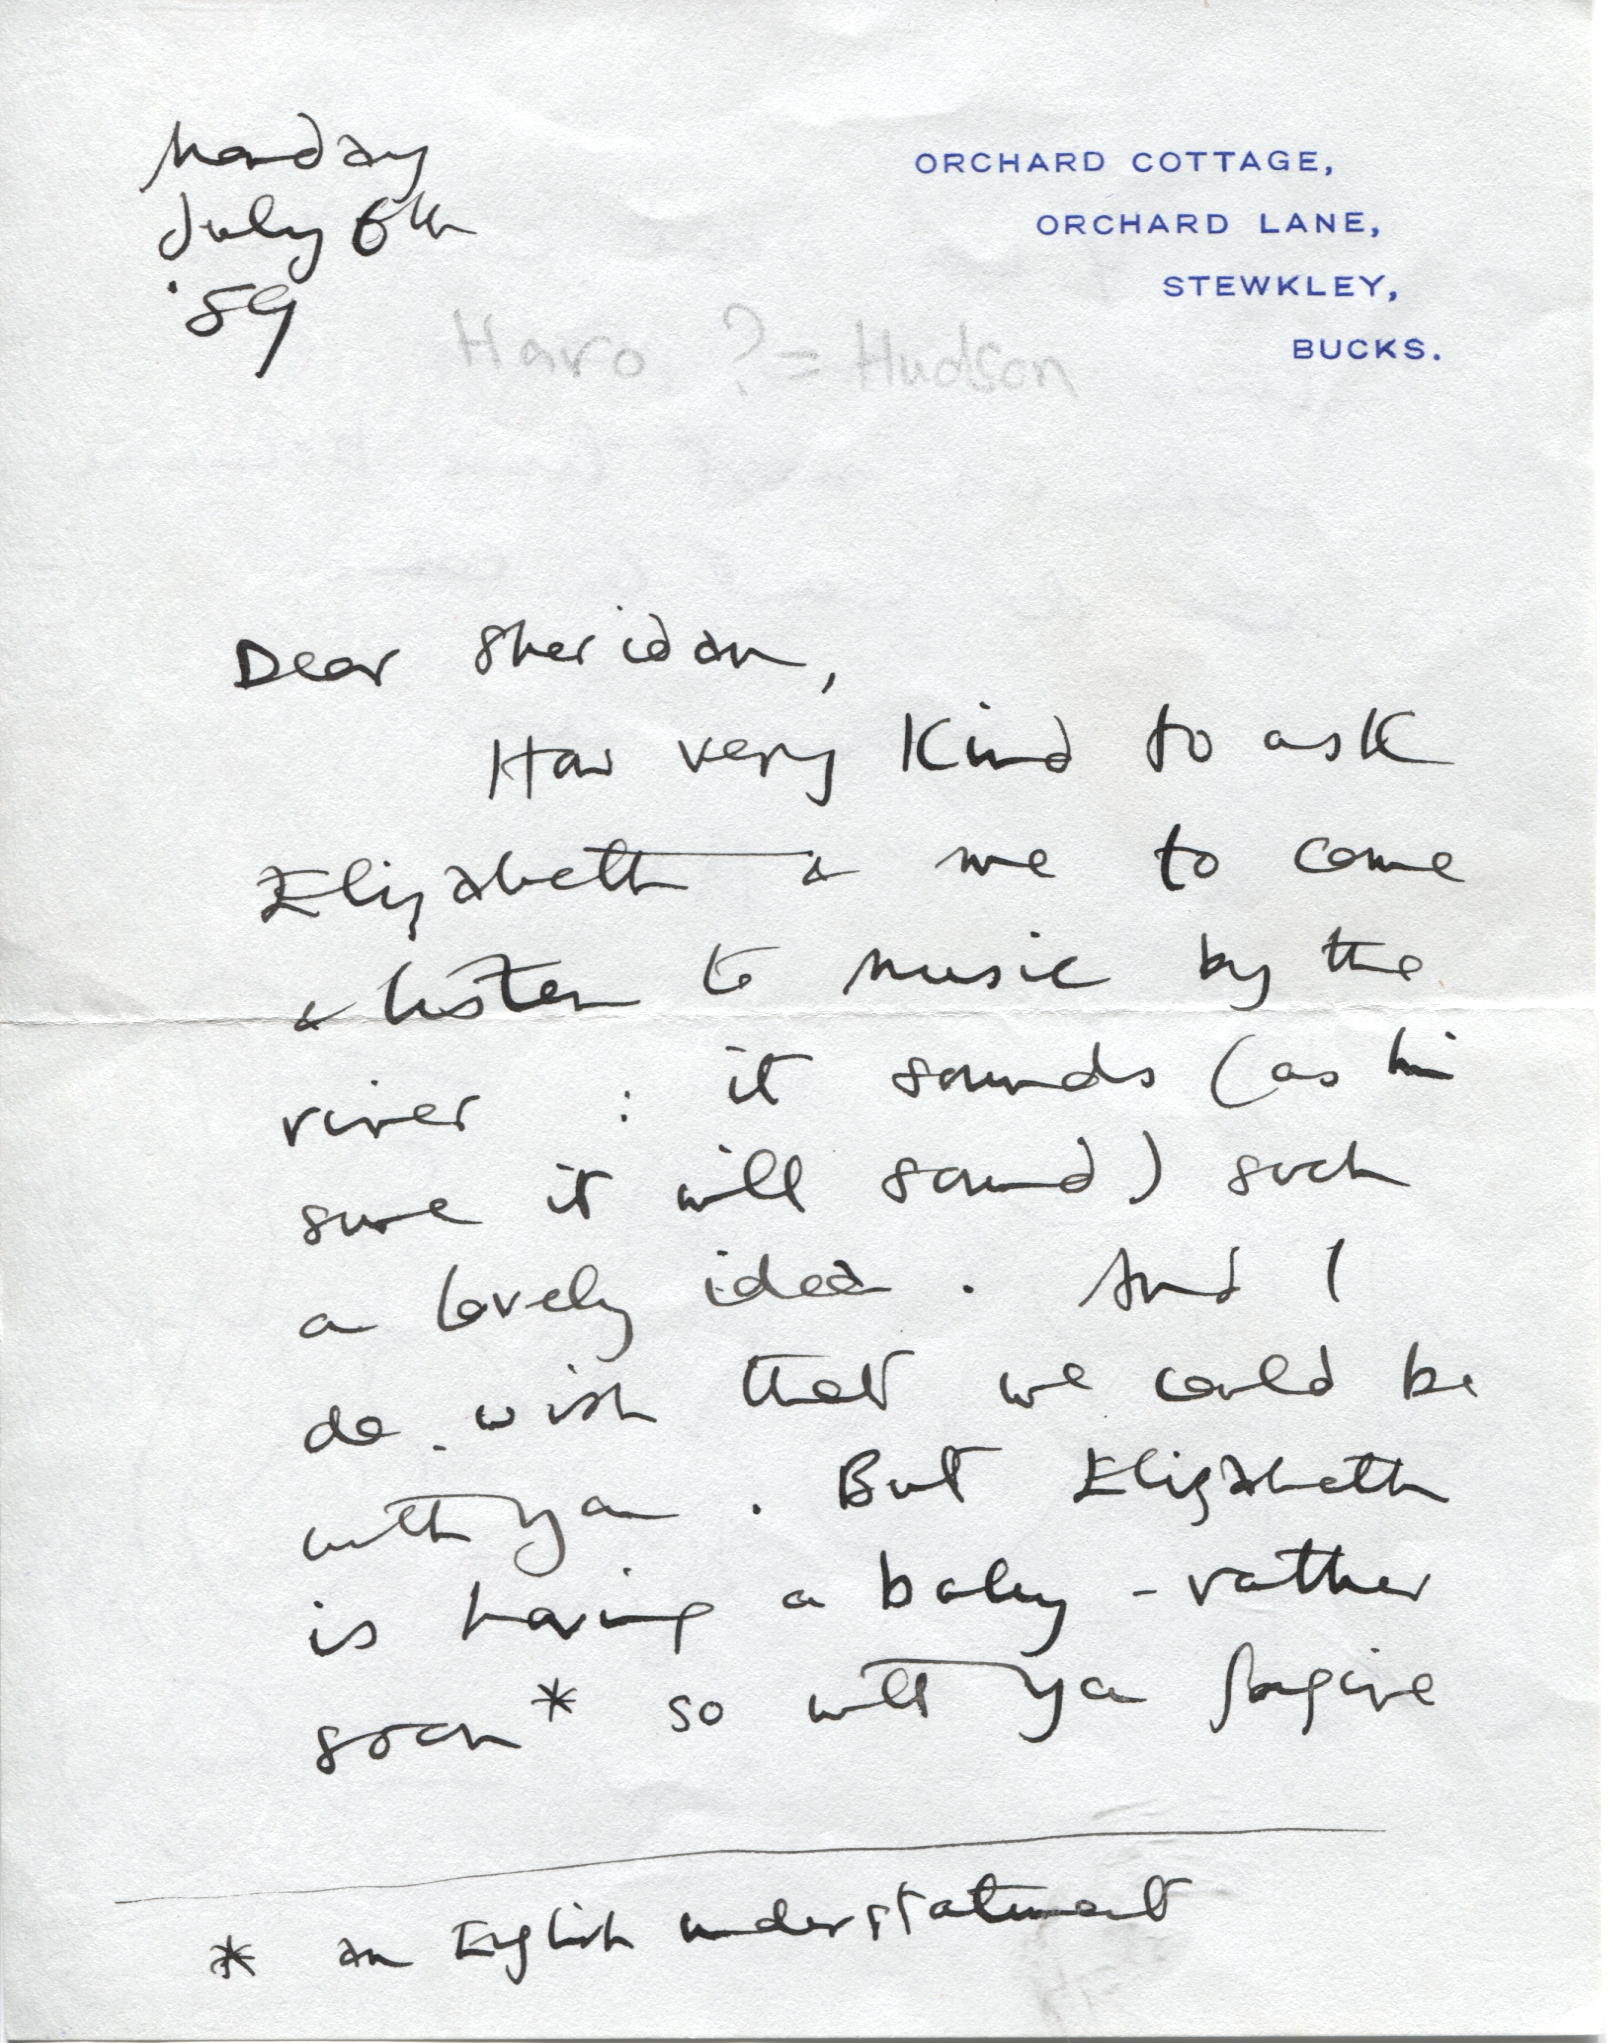 Monday
July 6th
'59
ORCHARD COTTAGE,
ORCHARD LANE,
STEWKLEY,
BUCKS.
Haro ? = Hudson
Dear Sheridan,
How very kind to ask
Elizabeth & me to come
& listen to music by the
river : it sounds (as I'm
sure it will sound) such
a lovely idea. And I
do wish that we could be
with you. But Elizabeth
is having a baby - rather
soon* so will you forgive
* an English understatement